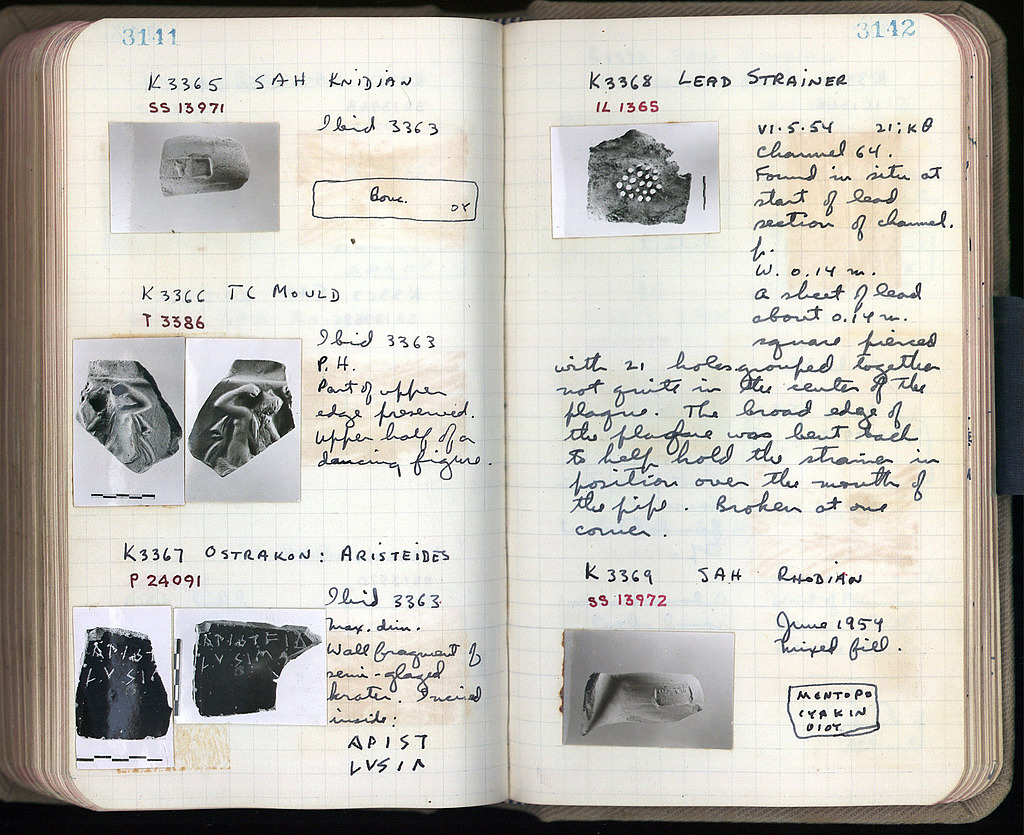 3141
K 3365 SAH KNIDIAN
SS 13971
Ibid 3363
Bouc.
ΟΥ
K 3366 TC MOULD
T 3386
Ibid 3363
P. H.
Part of upper
edge preserved.
upper half of a
dancing figure.
K 3367 OSTRAKON: ARISTEIDES
P 24091
Ibid 3363
max. dim.
Wall fragment of
semi-glazed
krater. Incised
inside:
ΑΡΙΣΤ
LVSIΛ
3142
K 3368 LEAD STRAINER
IL 1365
VI.5.54 21; ΚΘ
Channel 64.
Found in situ at
start of lead
section of channel.
W. 0.14 m.
a sheet of lead
about 0.14 m.
square pierced
with 21 holes grouped together
not quite in the center of the
plaque. The broad edge of
the plaque was bent back
to help hold the strainer in
position over the mouth of
the pipe. Broken at one
corner.
K 3369 SAH RHODIAN
SS 13972
June 1954
mixed fill.
ΜΕΝΤΟΡΟ
CΥΑΚΙΝ
ΘΙΟΥ